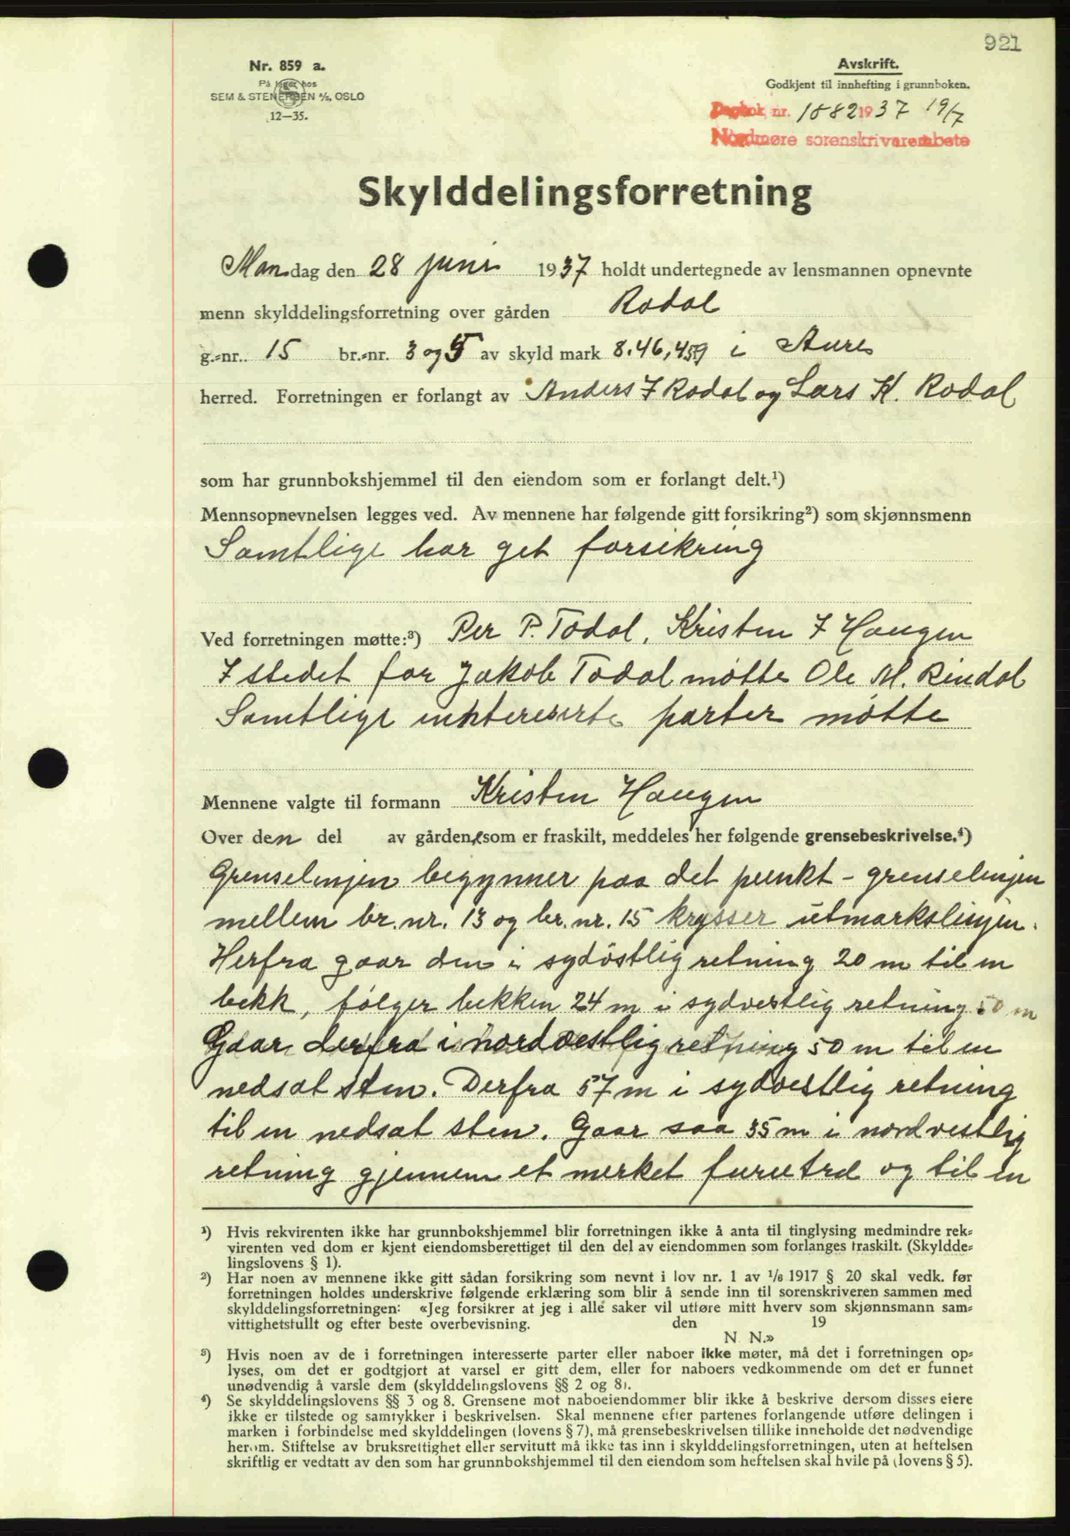 921
Nr. 859 a.
På lager hos
SEM & STENERSEN A/S, OSLO
12—35.
Avskrift.
Godkjent til innhefting i grunnboken.
Dagbok nr. 1882 1937 19/7
Nordmøre sorenskriverembete
Skylddelingsforretning
Mandag den 28 juni 1937 holdt undertegnede av lensmannen opnevnte
menn skylddelingsforretning over gården Rodal
g.=nr. 15 br.=nr. 3 og 5 av skyld mark 8.46, 4,59 i Aure
herred. Forretningen er forlangt av Anders I Rodal og Lars K. Rodal
som har grunnbokshjemmel til den eiendom som er forlangt delt.¹)
Mennsopnevnelsen legges ved. Av mennene har følgende gitt forsikring²) som skjønnsmenn
Samtlige har get forsikring
Ved forretningen møtte:³) Per P. Todal, Kristen I Haugen
I stedet for Jakob Todal møtte Ole M. Rindal
Samtlige interesserte parter møtte
Mennene valgte til formann Kristen Haugen
Over den del av gården som er fraskilt, meddeles her følgende grensebeskrivelse.⁴)
Grenselinjen begynner paa det punkt - grenselinjen
mellem br. nr. 13 og br. nr. 15 krysser utmarkslinjen.
Herfra gaar den i sydøstlig retning 20 m til en
bekk, følger bekken 24 m i sydvestlig retning 50 m
Gaar derfra i nordvestlig retning 50 m til en
nedsat sten. Derfra 57 m i sydvestlig retning
til en nedsat sten. Gaar saa 35 m i nordvestlig
retning gjennem et merket furutræ og til en
¹) Hvis rekvirenten ikke har grunnbokshjemmel blir forretningen ikke å anta til tinglysing medmindre rek=
virenten ved dom er kjent eiendomsberettiget til den del av eiendommen som forlanges fraskilt. (Skyldde=
lingslovens § 1).
²) Har noen av mennene ikke gitt sådan forsikring som nevnt i lov nr. 1 av 1/6 1917 § 20 skal vedk. før
forretningen holdes underskrive følgende erklæring som blir å sende inn til sorenskriveren sammen med
skylddelingsforretningen: «Jeg forsikrer at jeg i alle saker vil utføre mitt hverv som skjønnsmann sam=
vittighetsfullt og efter beste overbevisning. den 19
N. N.»
³) Hvis noen av de i forretningen interesserte parter eller naboer ikke møter, må det i forretningen op=
lyses, om det er godtgjort at varsel er gitt dem, eller for naboers vedkommende om det er funnet
unødvendig å varsle dem (skylddelingslovens §§ 2 og 8).
⁴) Se skylddelingslovens §§ 3 og 8. Grensene mot naboeiendommer blir ikke å beskrive dersom disses eiere
ikke er tilstede og samtykker i beskrivelsen. Skal mennene efter partenes forlangende utføre delingen i
marken i forbindelse med skylddelingen (lovens § 7), må grensebeskrivelsen tillike inneholde det nødvendige
herom. Stiftelse av bruksrettighet eller servitutt må ikke tas inn i skylddelingsforretningen, uten at heftelsen
skriftlig er vedtatt av den som har grunnbokshjemmel til den eiendom som heftelsen skal hvile på (lovens § 5).